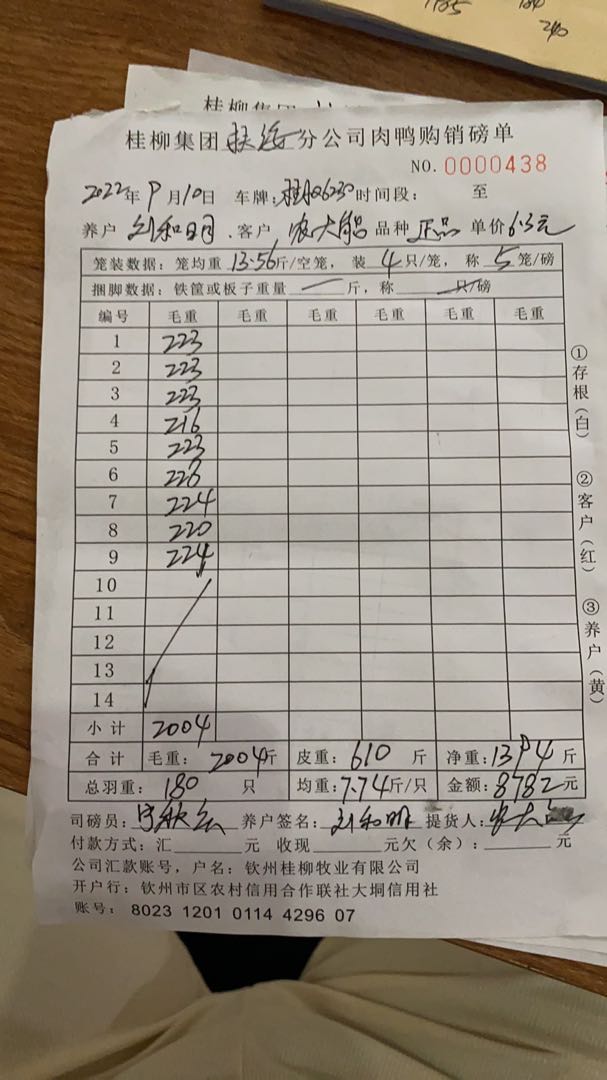 240
桂柳集团
桂柳集团 分公司肉鸭购销磅单
NO. 0000438
2022年9月10日 车牌: 时间段: 至
养户 刘和明、客户 农大船 品种 正品 单价6.3元
笼装数据: 笼均重13.56斤/空笼, 装4只/笼, 称5笼/磅
捆脚数据: 铁筐或板子重量 斤, 称 只/磅
编号 毛重 毛重 毛重 毛重 毛重 毛重
1 223
2 223
3 223
4 216
5 223
6 228
7 224
8 220
9 224
10
11
12
13
14
小计 2004
合计 毛重: 2004斤 皮重: 610 斤 净重: 1394斤
总羽重: 180 只 均重: 7.74斤/只 金额: 8782元
司磅员: 养户签名: 刘和明 提货人: 农大
付款方式: 汇 元 收现 元欠(余): 元
公司汇款账号, 户名: 钦州桂柳牧业有限公司
开户行: 钦州市区农村信用合作联社大垌信用社
账号: 8023 1201 0114 4296 07
①存根(白)
②客户(红)
③养户(黄)